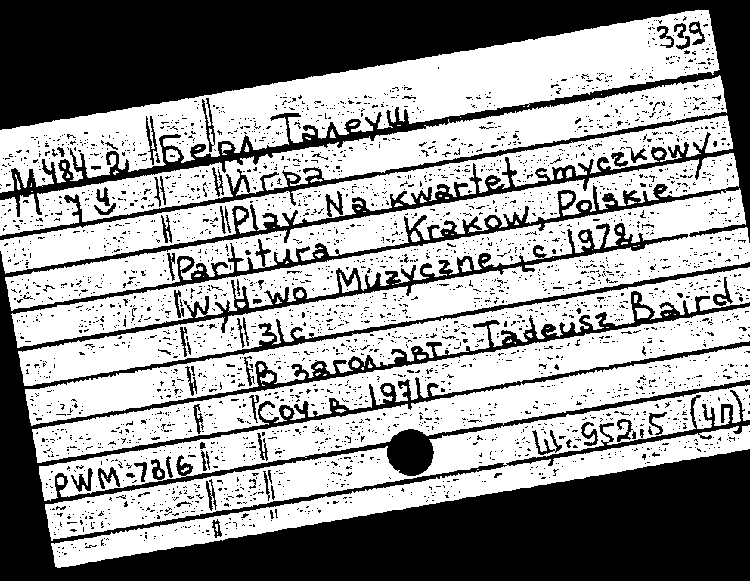 339
М 484-2 Берд, Тадеуш
74 Игра
Play. Na kwartet smyczkowy.
Partitura. Krakow, Polskie
Wyd-wo Muzyczne, [c. 1972]
31 с.
В загол. авт.: Tadeusz Baird.
Соч. в 1971г.
PWM-7816 Ш. 952.5 (4П)